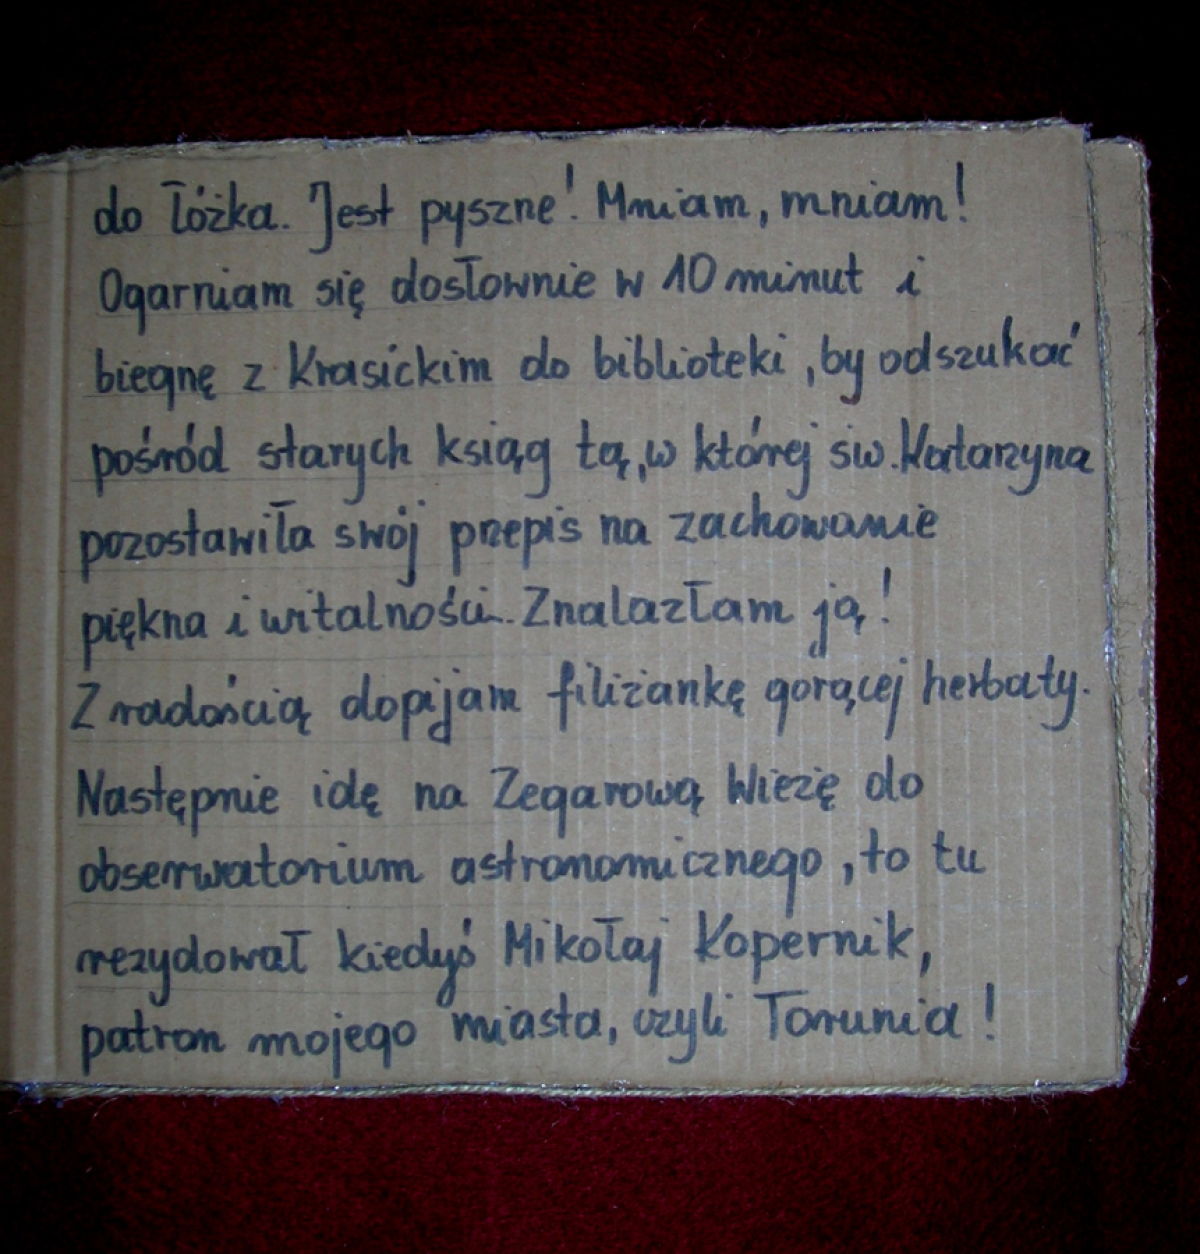 do łóżka. Jest pyszne! Mniam, mniam!
Ogarniam się dosłownie w 10 minut i
biegnę z Krasickim do biblioteki, by odszukać
pośród starych ksiąg tą, w której św. Katarzyna
pozostawiła swój przepis na zachowanie
piękna i witalności. Znalazłam ją!
Z radością dopijam filiżankę gorącej herbaty.
Następnie idę na Zegarową Wieżę do
obserwatorium astronomicznego, to tu
rezydował kiedyś Mikołaj Kopernik,
patron mojego miasta, czyli Torunia!